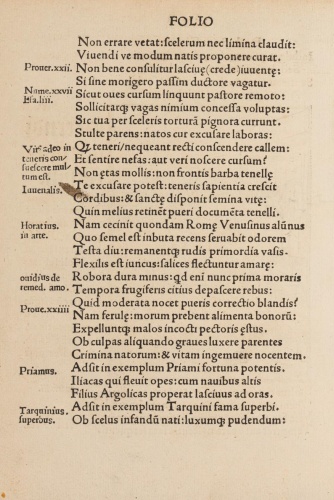 FOLIO
Non errare vetat: scelerum nec limina claudit:
Viuendi ve modum natis proponere curat.
Prouer.xxii.
Non bene consulitur lasciuę (crede) iuuentę:
Si sine morigero passim ductore vagatur.
Nume.xxvii
Sicut oues cursum linquunt pastore remoto:
Esa.liii.
Sollicitatq; vagas nimium concessa voluptas:
Sic tua per sceleris torturā pignora currunt.
Stulte parens: natos cur excusare laboras:
Virg. adeo in
Q teneri/nequeant recti conscendere callem:
teneris con
Et sentire nefas: aut veri noscere cursum?
suescere mul
Non ętas mollis: non frontis barba tenellę
tum est.
Iuuenalis.
Te excusare potest: teneris sapientia crescit
Cordibus: & sanctę disponit semina vitę:
Quin melius retinēt pueri documēta tenelli.
Horatius.
Nam cecinit quondam Romę Venusinus alūnus
in arte.
Quo semel est inbuta recens seruabit odorem
Testa diu: remanentq; rudis primordia vasis.
Flexilis est iuncus: salices flectuntur amarę:
ouidius de
Robora dura minus: qd eni nunc prima moraris
remed. amo.
Tempora frugiferis citius depascere rebus:
Proue.xxiiii
Quid moderata nocet pueris correctio blandis?
Nam ferulę: morum prebent alimenta bonorū:
Expelluntq; malos incocti pectoris ęstus.
Ob culpas aliquando graues luxere parentes
Crimina natorum: & vitam ingemuere nocentem.
Priamus.
Adsit in exemplum Priami fortuna potentis.
Iliacas qui fleuit opes: cum nauibus altis
Filius Argolicas properat lasciuus ad oras.
Tarquinius.
Adsit in exemplum Tarquini fama superbi.
superbus.
Ob scelus infandū nati: luxumq; pudendum: